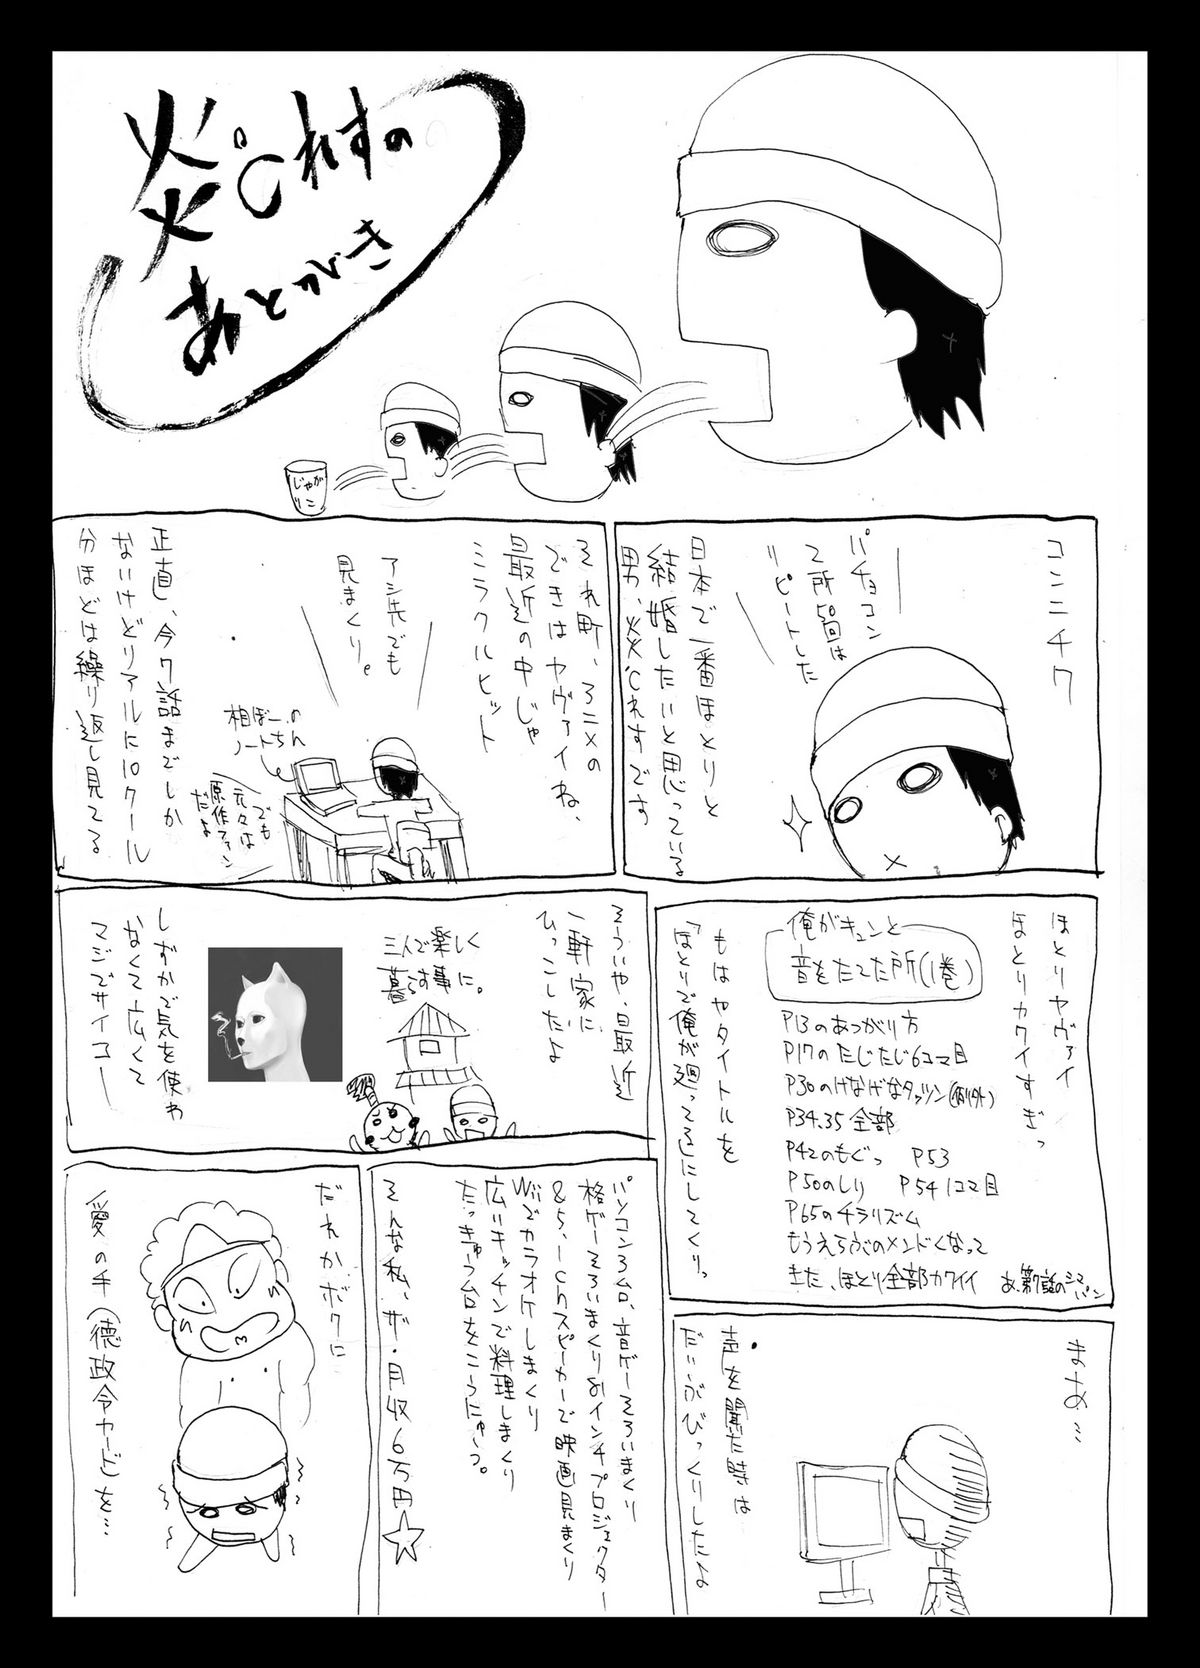 炎℃れすの
あとがき
じゃが
りこ
コンニチワ
パチョコン
2所50回は
リピートした
日本で一番ほとりと
結婚したいと思っている
男、炎℃れすです
それ町、アニメの
できはヤヴァイね、
最近の中じゃ
ミラクルヒット
アシ先でも
見まくり。
相ぼーの
ノートちん
でも
元々は
原作ファン
だよ
正直、今7話までしか
ないけどリアルに10クール
分ほどは繰り返し見てる
ほとりヤヴァイ
ほとりカワイすぎっ
俺がキュンと
音をたてた所(1巻)
P13のあつがり方
P17のたじたじ6コマ目
P30のけなげなタッツン
P34.35全部
P42のもぐっ P53
P50のしり P54 1コマ目
P65のチラリズム
もうえらぶのメンドくなって
きた、ほとり全部カワイイ
あ、第7話のシマパン
もはやタイトルを
「ほとりで俺が廻ってる」にしてくりっ
そういや、最近
一軒家に
ひっこしたよ
三人で楽しく
暮らす事に。
しずかで気を使わ
なくて広くて
マジでサイコー
まあ…
声を聞いた時は
だいぶびっくりしたよ
パソコン3台、音ゲーそろいまくり
格ゲーそろいまくり80インチプロジェクター
&5.1chスピーカーで映画見まくり
Wiiでカラオケしまくり
広いキッチンで料理しまくり
たっきゅう台をこうにゅう。
そんな私、ザ・月収6万円☆
だれかボクに
愛の手(徳政令カード)を…